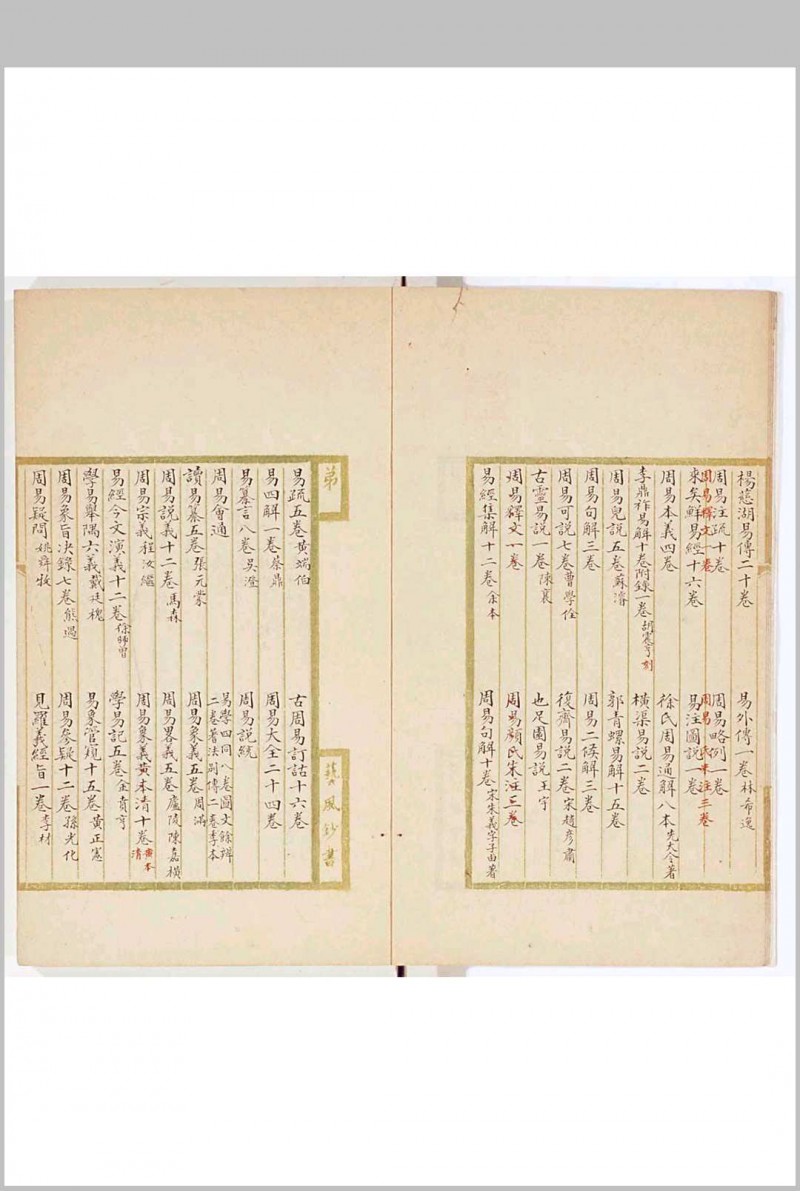 楊慈湖易傳二十卷　易外傳一卷林希逸
周易注疏十卷　周易略例一卷
周易釋文一卷　周易　氏朱注三卷
來矣鮮易經十六卷　易注圖說一卷
周易本義四卷　徐氏周易通解八本先大令著
李鼎祚易解十卷附錄一卷胡震亨刻　橫渠易說二卷
周易兒說五卷蘇濬　郭青螺易解十五卷
周易句解三卷　周易二候解三卷
周易可說七卷曹學佺　復齋易說二卷宋趙彥肅
古靈易說一卷陳襄　也足園易說王宇
周易釋文一卷　周易顏氏朱注三卷
易經集解十二卷余本　周易句解十卷宋朱義字子由著
弟
藝風鈔書
易疏五卷黃端伯　古周易訂詁十六卷
易四解一卷蔡鼎　周易大全二十四卷
易纂言八卷吳澄　周易說統
周易會通　易學四同八卷圖文餘辨二卷著法別傳二卷季本
讀易纂五卷張元蒙　周易象義五卷周滿
周易說義十二卷馬森　周易畧義五卷廬陵陳嘉橫
周易宗義程汝繼　周易象義黃本清十卷黃本清
易經今文演義十二卷徐師曾　學易記五卷金賁亨
學易舉隅六義戴廷槐　易象管窺十五卷黃正憲
周易象旨决錄七卷熊過　周易參疑十二卷孫光化
周易疑問姚舜牧　見羅義經旨一卷李材